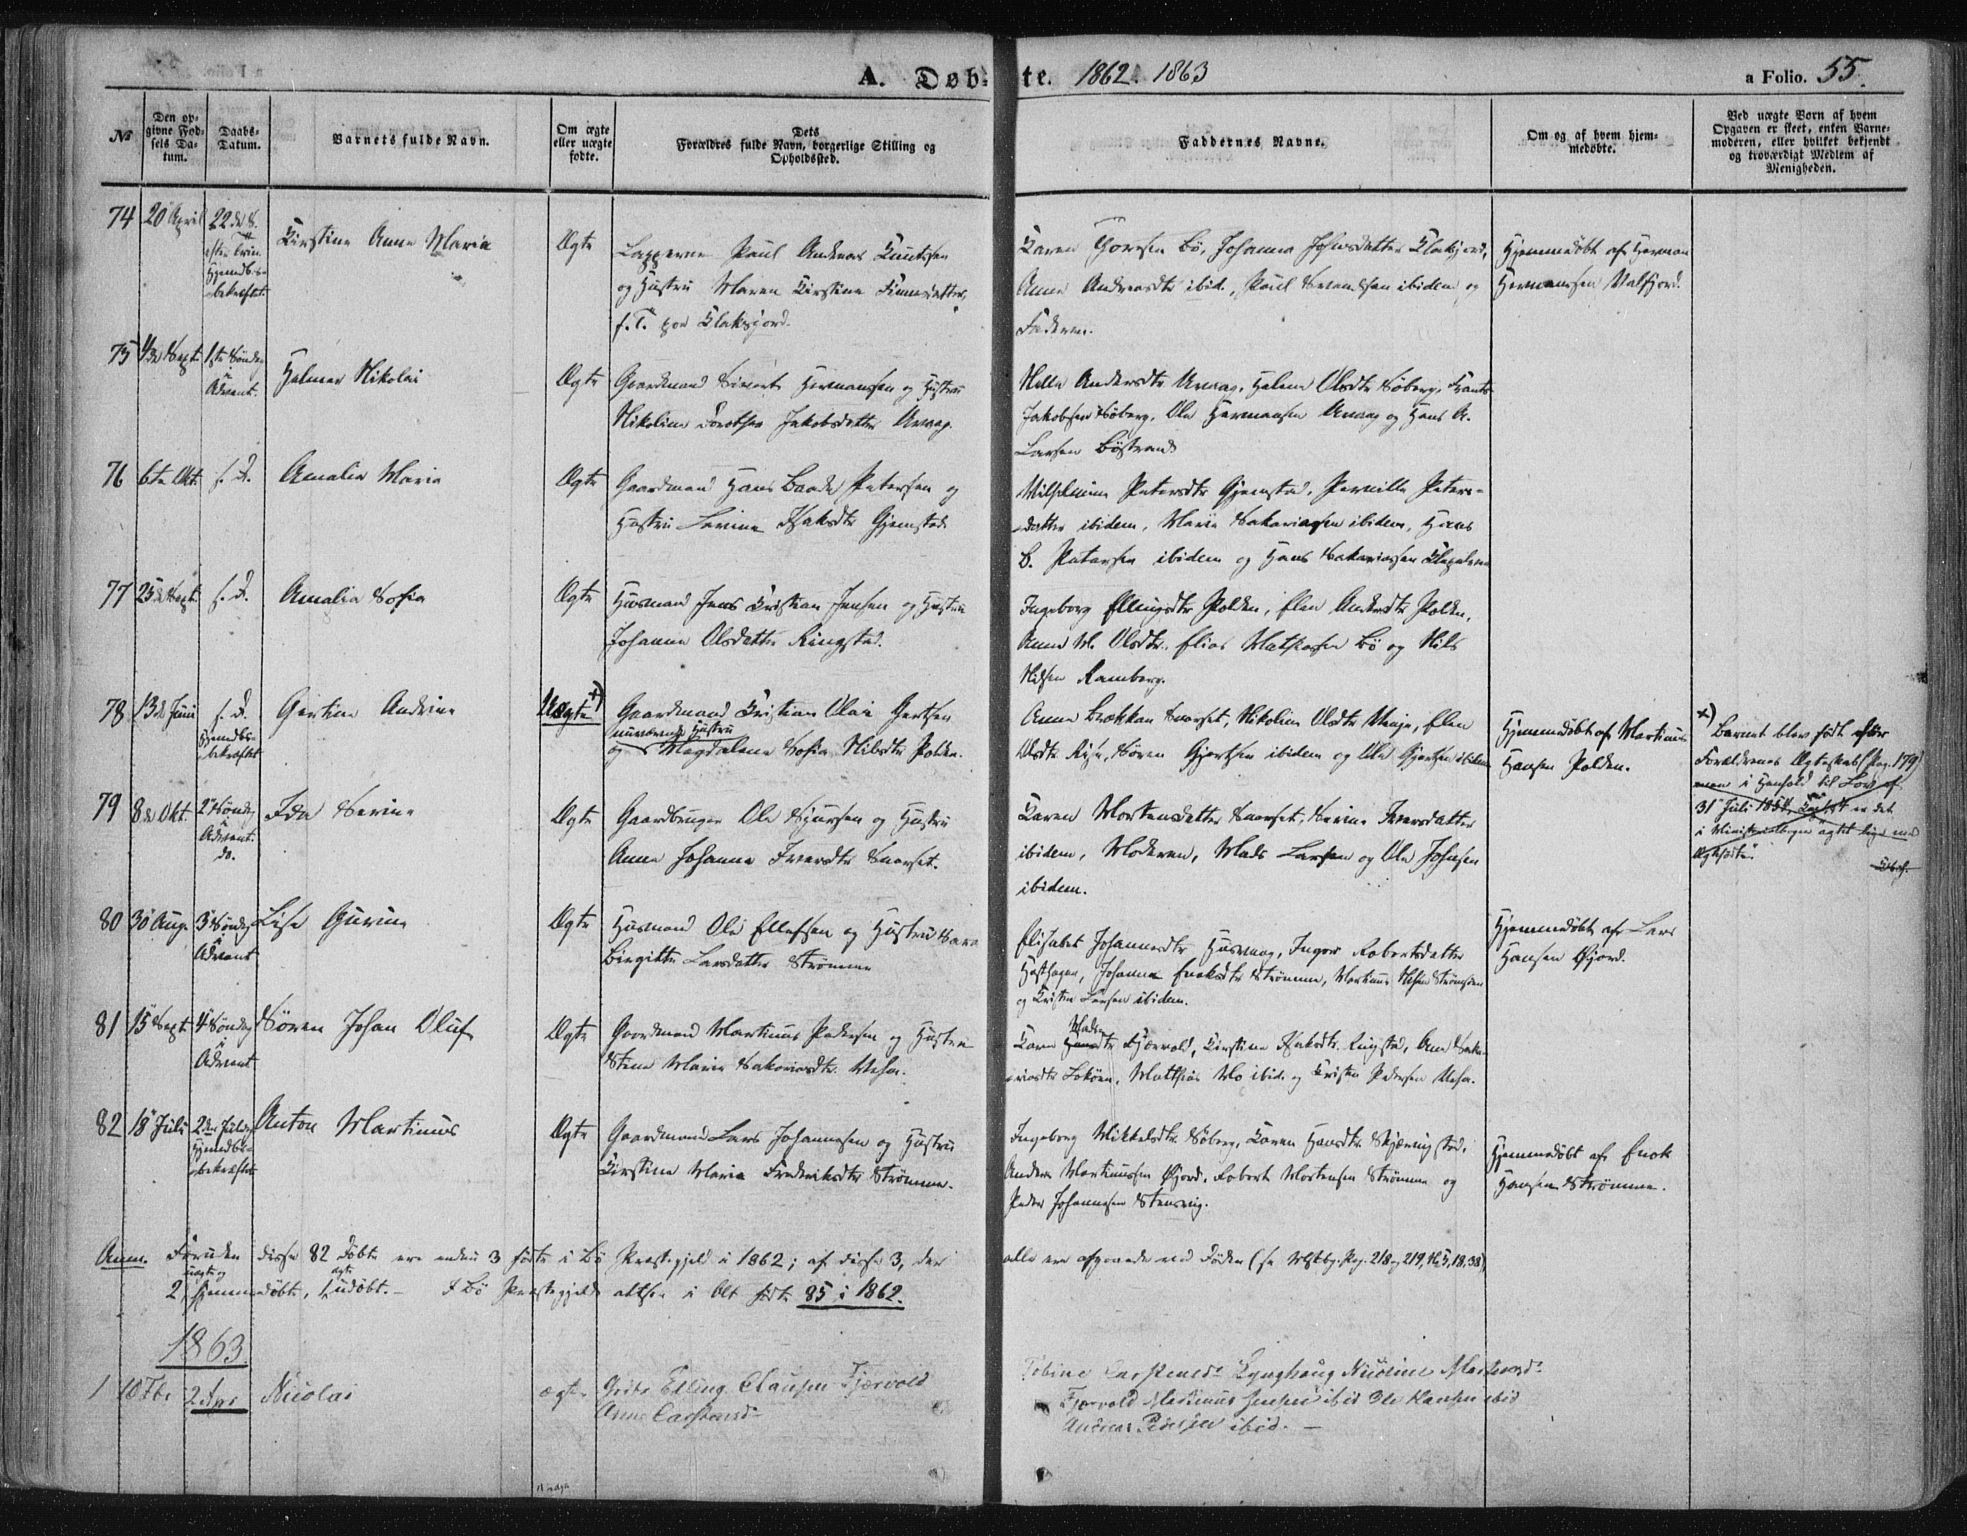 A. Døbte. 1862. 1863
a Folio. 55.
No
Den opgivne Fødsels Datum.
Daabs-Datum.
Barnets fulde Navn.
Om ægte eller uægte fødte.
Dets Forældres fulde Navn, borgerlige Stilling og Opholdssted.
Faddernes Navne.
Om og af hvem hjemmedøbte.
Ved uægte Børn af hvem Opgaven er skeet, enten Barnemoderen, eller hvilket bekjendt og troværdigt Medlem af Menigheden.
74 20 April 22 de S. efter Trin. Hjemdb. bekræftet. Kirstine Anne Maria Ægte
Lapperne Paul Andreas Knutsen
og Hustru Maren Kirstine Finnesdatter,
f. T. paa Klaksjord.
Karen Bø, Johanna Johnsdatter Klaksjord,
Anne Andreasdtr ibid., Paul Svendsen ibidem og
Faderen.
Hjemmedøbt af Herman
Hermanssen Valfjord.
75 4de Sept. 1ste Søndag i Advent. Halmer Nikolai Ægte
Gaardmand Sivert Hermansen og Hustru
Nikoline Dorothea Jakobsdatter Urvaag.
Helle Andersdtr Urvaag, Helene Olsdtr Søberg, Frants
Jakobsen Søberg, Ole Hermansen Urvaag og Hans A.
Larsen Bøstrand
76 6te Okt. s. D. Amalia Maria Ægte
Gaardmand Hans Baade Petersen og
Hustru Lavine Isaksdtr Gjemstad.
Wilhelmine Petersdtr Gjemstad, Pernille Peters-
datter ibidem, Marie Sakariassen ibidem, Hans
B. Petersen ibidem og Hans Sakariassen
77 25de Sept. s. D. Amalia Sofia Ægte
Husmand Jens Kristian Jensen og Hustru
Johanna Olsdatter Ringstad.
Ingeborg Ellingsdtr Polden, Elen Andersdtr Polden,
Anne M. Olsdtr. Elias Mathiassen Bø og Nils
Nilsen Ramberg.
78 13de Juni s. D. Hjemdb. bekræftet Gertine Andrine Uægte +)
Gaardmand Kristian Olai Gertsen
nuværende Hustru
og Magdalena Sofia Nilsdtr Polden.
Anne Brekkan Snorset, Nikoline Olsdtr Elen
Olsdtr Søren Gjertsen ibidem og Ole Gjertsen ibidem
Hjemmedøbt af Martinus
Hansen Polden.
+) Barnet blev født efter
Forældrenes Ægteskab (Pag. 179)
men i Henhold til Lov af
31 Juli 1854 er det
i Ministerialbogen agtet lige med
Ægtefødte.
79 8de Okt. 2 Søndag i Advent. do. Ida Serine Ægte
Gaardbruger Ole Sjursen og Hustru
Anne Johanna Iversdtr Snorset.
Karen Mortensdatter Snorset, Serine Iversdatter
ibidem, Moderen, Mads Larsen og Ole Johnsen
ibidem.
80 30 Aug. 3 Søndag i Advent Lise Gurine Ægte
Husmand Ole Ellefsen og Hustru Sara
Birgitte Larsdatter Strømme
Elisabet Johannesdtr Inger Robertsdatter
Johanna Enoksdtr Strømme, Martinus Nilsen
og Kristen Larsen ibidem.
Hjemmedøbt af Lars
Hansen Øjord.
81 15 Sept. 4 Søndag i Advent Søren Johan Oluf Ægte
Gaardmand Martinus Pedersen og Hustru
Stina Maria Sakariasdtr.
Karen Fjærvold, Kirstine Isaksdtr.
Matthias Mo ibid. og Kristen Pedersen
82 18 Juli 2den Juledag Hjemdb. bekræftet Anton Martinus Ægte
Gaardmand Lars Johannesen og Hustru
Kirstine Maria Frederiksdtr Strømme.
Ingeborg Mikkelsdtr Søberg, Karen Hansdtr
Anders Martinussen Øjord, Robert Mortensen Strømme og
Peder Johannesen Stensvig.
Hjemmedøbt af Enok
Hansen Strømme.
Anm. Foruden disse 82 Døbte ere endnu 3 fødte i Bø Præstegjeld i 1862; af disse 3, der alle ere afgaaede ved Døden (se Mstbg. Pag. 218 og 219, No 5, 18, 38),
2 hjemmedøbte, 1 udøbt. – I Bø Præstegjeld altsaa i Alt fødte 85 i 1862.
1863
1 10 Fbr 2 Apr Nicolai ægte
Elling Clausen Fjærvold
Anne Carstensd
Tobine Carstensd Lynghaug Nicoline
Fjærvold Martinus Jensen ibid Ole Hansen ibid
Andreas ibid. –